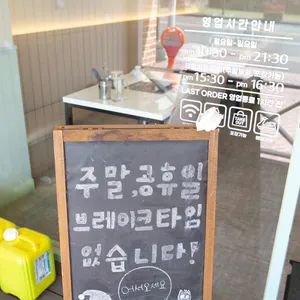 영업시간안내
월요일-일요일
am 10:30 - pm 21:30
pm 15:30 - pm 16:30
LAST ORDER 영업종료 1시간 전
포장가능
주말,공휴일
브레이크타임
없습니다!
어서오세요